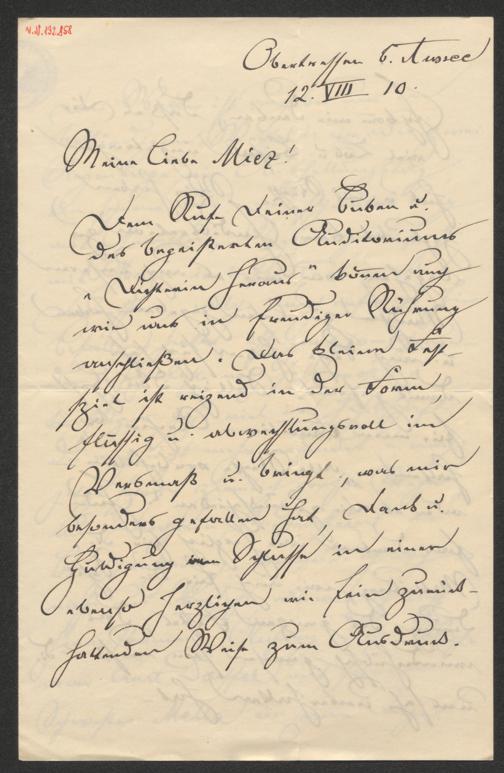 V.N.192.858
Obertressen b. Aussee
12. VIII 10.
Meine liebe Miez!
Dem Rufe Deiner Buben u.
des begeisterten Auditoriums
„Dichterin heraus" können auch
wir uns in freudiger Rührung
anschließen. Das kleine Fest-
spiel ist reizend in der Form,
flüssig u. abwechslungsvoll im
Versmaß u. bringt, was mir
besonders gefallen hat, Dank u.
Huldigung am Schlusse in einer
ebenso herzlichen wie fein zurück-
haltenden Weise zum Ausdruck.